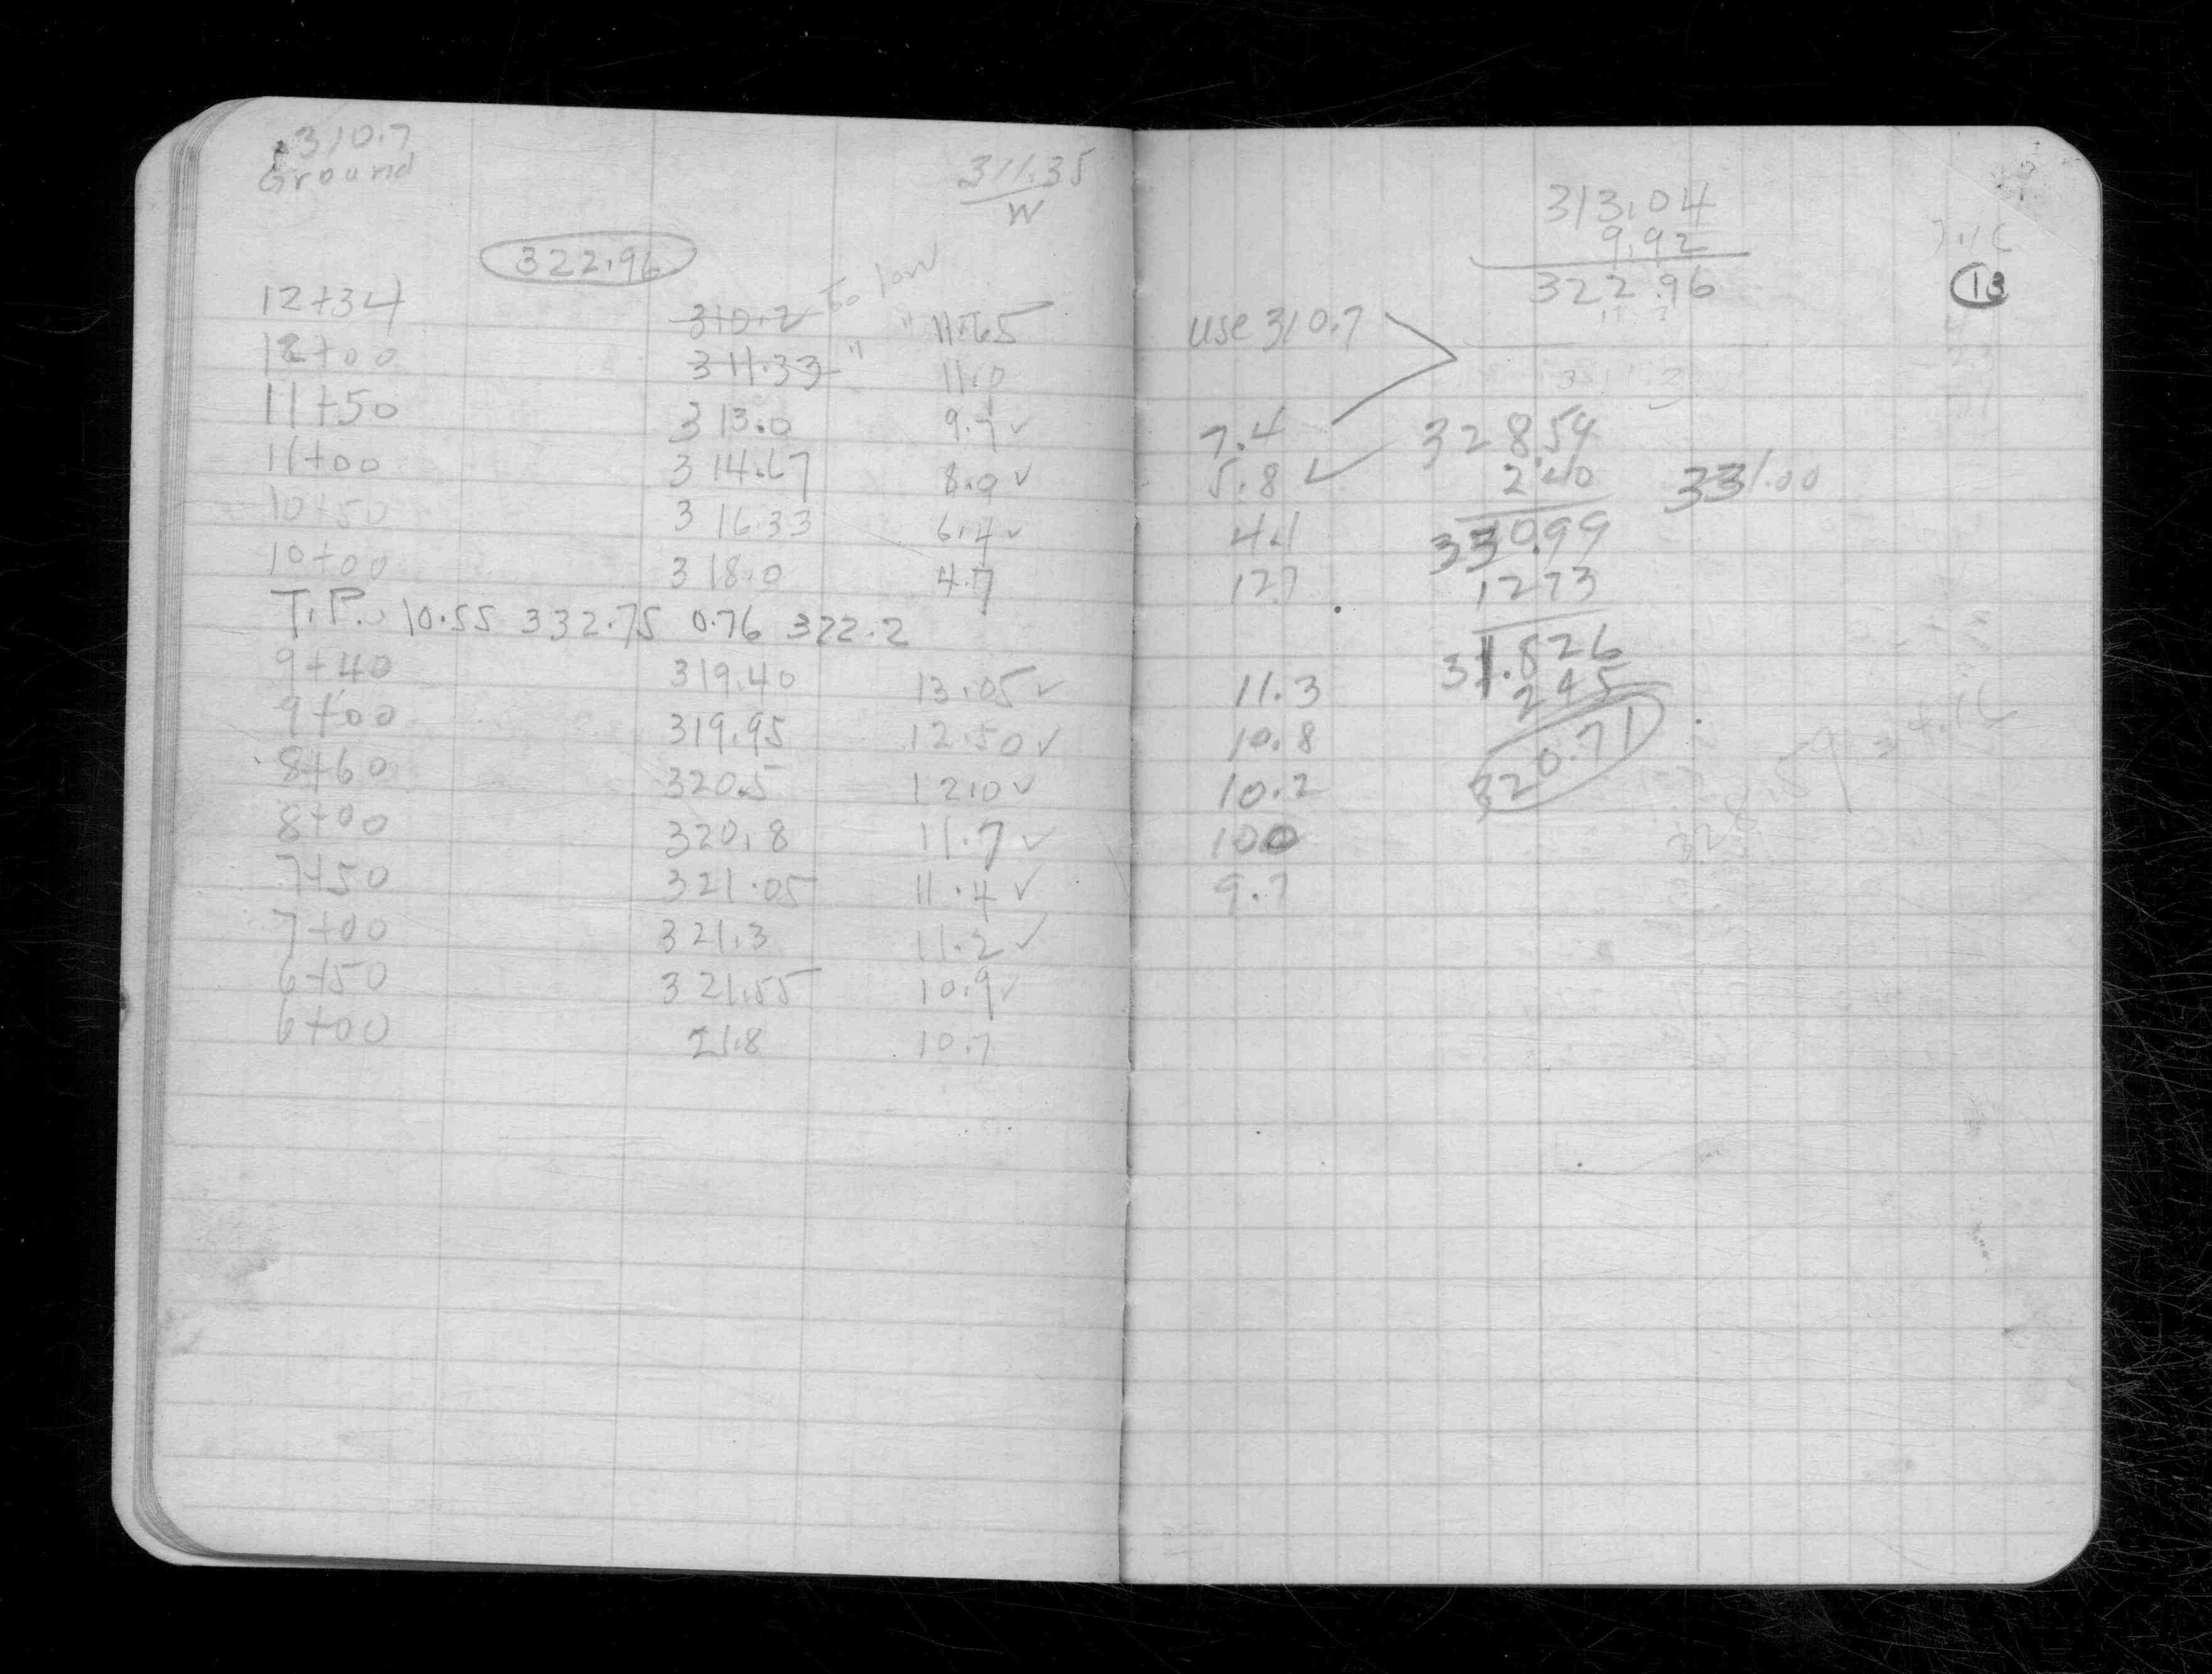 310.7
Ground
311.35
W
322.96
12+34 310.2 to low " 11.65
12+00 311.33 " 11.0
11+50 313.0 9.9 ✓
11+00 314.67 8.0 ✓
10+50 316.33 6.4 ✓
10+00 318.0 4.7
T.P. 10.55 332.75 0.76 322.2
9+40 319.40 13.05 ✓
9+00 319.95 12.50 ✓
8+60 320.5 12.0 ✓
8+00 320.8 11.7 ✓
7+50 321.05 11.4 ✓
7+00 321.3 11.2 ✓
6+50 321.55 10.9 ✓
6+00 21.8 10.7
313.04
9.92
322.96
13
use 310.7
7.4
5.8 ✓
4.1
12.7
11.3
10.8
10.2
10.0
9.7
328.59
2.40
330.99
1273
31.826
245
320.71
331.00